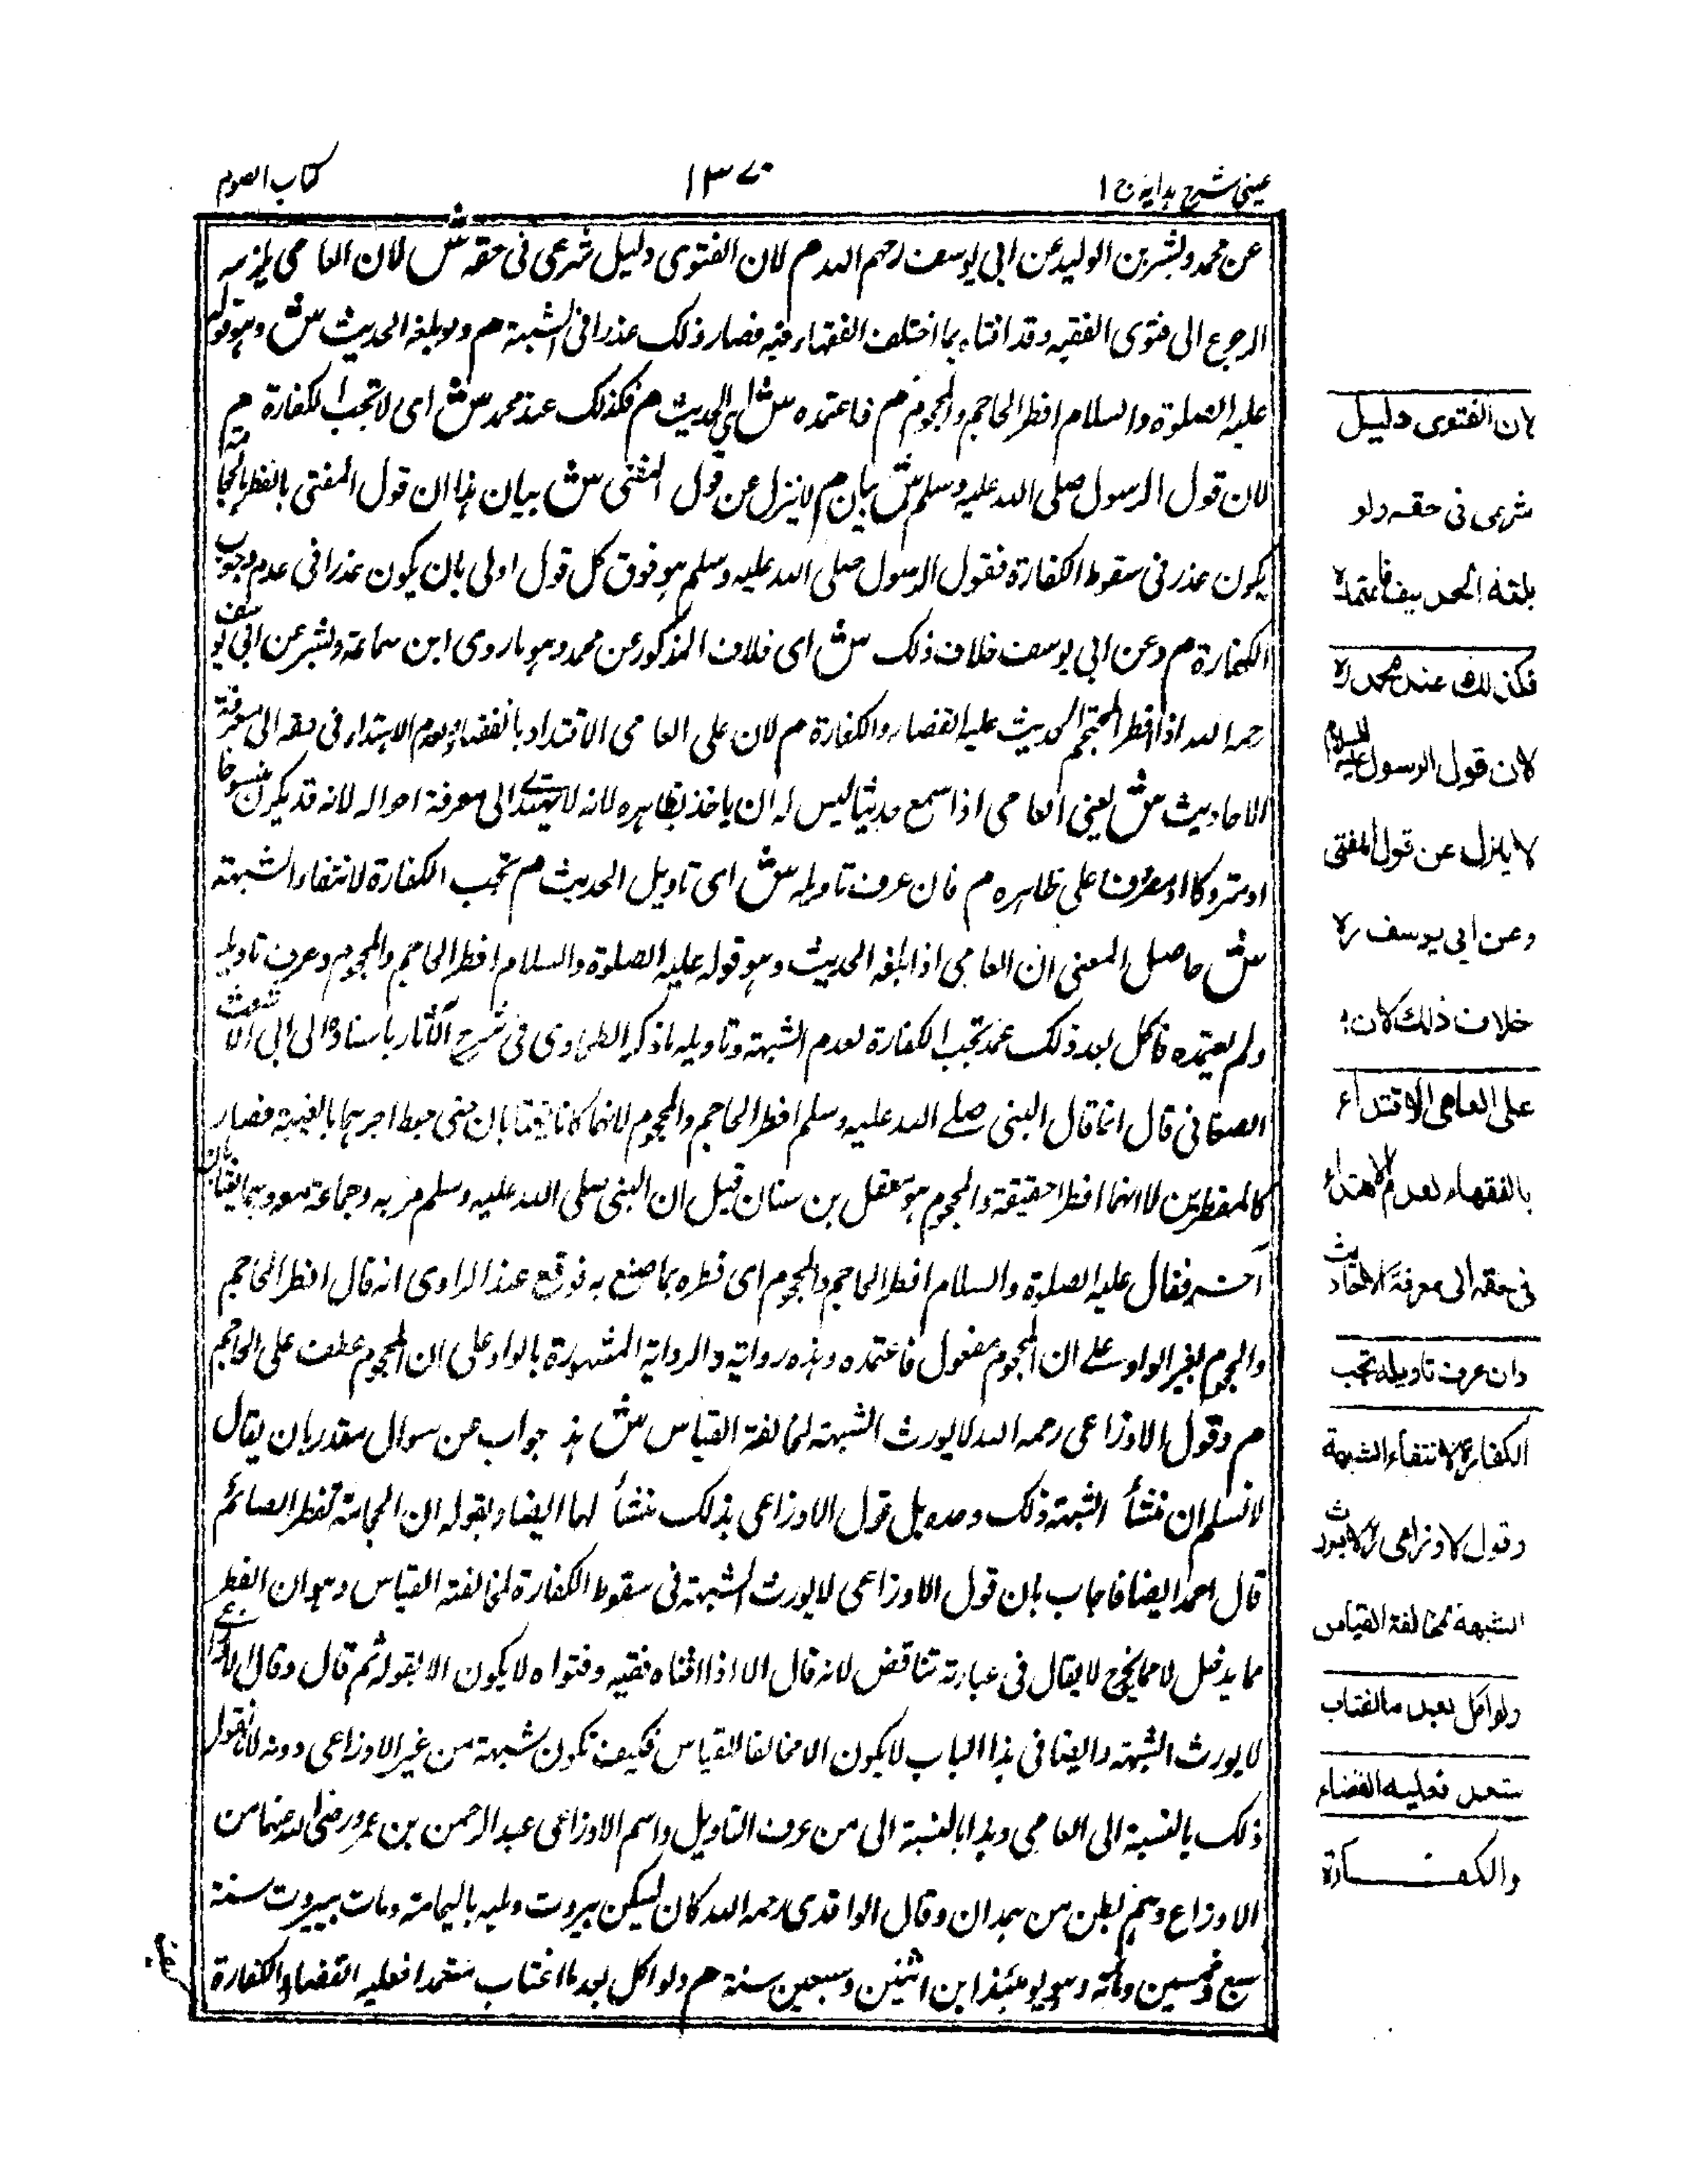 عینی شرح ہدایہ ج ١
١٣٧٠
کتاب الصوم
عن محمد وبشر بن الولید عن ابی یوسف رحمہم اللہ م لان الفتوی دلیل شرعی فی حقہ ش لان العامی یلزمہ
الرجوع الی فتوی الفقیہ وقد افتاہ بما اختلف الفقہاء فیہ فصار ذلک عذرا فی الشبہۃ م ولو بلغہ الحدیث ش وہو قولہ
علیہ الصلوۃ والسلام افطر الحاجم والمحجوم م فاعتمدہ ش ای الحدیث م فکذلک عند محمد ش ای لا تجب الکفارۃ م
لان قول الرسول صلی اللہ علیہ وسلم ش بیان م لا ینزل عن قول المفتی ش بیان ہذا ان قول المفتی بالفطر بالحجامۃ
یکون عذر فی سقوط الکفارۃ فقول الرسول صلی اللہ علیہ وسلم ہو فوق کل قول اولی بان یکون عذرا فی عدم وجوب
الکفارۃ م وعن ابی یوسف خلاف ذلک ش ای خلاف المذکور عن محمد وہو ما روی ابن سماعۃ وبشر عن ابی یوسف
رحمہ اللہ اذا افطر المحتجم الحدیث علیہ القضاء والکفارۃ م لان علی العامی الاقتداء بالفقہاء لعدم الاہتداء فی حقہ الی معرفۃ
الاحادیث ش یعنی العامی اذا سمع حدیثا لیس لہ ان یاخذ بظاہرہ لانہ لا یہتدی الی معرفۃ احوالہ لانہ قد یکون منسوخا
او متروکا او مصروفا علی ظاہرہ م فان عرف تاویلہ ش ای تاویل الحدیث م تجب الکفارۃ لانتفاء الشبہۃ
ش حاصل المعنی ان العامی اذا بلغہ الحدیث وہو قولہ علیہ الصلوۃ والسلام افطر الحاجم والمحجوم وعرف تاویلہ
ولم یعتمدہ فاکل بعد ذلک عمدا تجب الکفارۃ لعدم الشبہۃ وتاویلہ ما ذکرہ الطحاوی فی شرح الآثار باسنادہ الی ابی الاشعث
الصنعانی قال انما قال النبی صلے اللہ علیہ وسلم افطر الحاجم والمحجوم لانہما کانا یغتابان حتی حبط اجرہما بالغیبۃ فصار
کالمفطرین لا انہما افطرا حقیقۃ والمحجوم ہو معقل بن سنان قیل ان النبی صلی اللہ علیہ وسلم مر بہ وجماعۃ معہ وہما یغتابان
آخر فقال علیہ الصلوۃ والسلام افطر الحاجم والمحجوم ای فطرہ بما صنع بہ فوقع عند الراوی انہ قال افطر الحاجم
والمحجوم بغیر الواو علے ان المحجوم مفعول فاعتمدہ وہذہ روایۃ والروایۃ المشہورۃ بالواو علی ان المحجوم عطف علی الحاجم
م وقول الاوزاعی رحمہ اللہ لا یورث الشبہۃ لمخالفۃ القیاس ش ہذا جواب عن سوال مقدر بان یقال
لا نسلم ان منشأ الشبہۃ ذلک وحدہ بل قول الاوزاعی بذلک منشأ لہا ایضا وبقولہ ان الحجامۃ تفطر الصائم
قال احمد ایضا فاجاب بان قول الاوزاعی لا یورث الشبہۃ فی سقوط الکفارۃ لمخالفۃ القیاس وہو ان الفطر
مما یدخل لا مما یخرج لا یقال فی عبارتہ تناقض لانہ قال الا اذا افتاہ فقیہ وفتواہ لا یکون الا بقولہ ثم قال وقال الاوزاعی
لا یورث الشبہۃ وایضا فی ہذا الباب لا یکون الا مخالفا للقیاس فکیف تکون شبہۃ من غیر الاوزاعی دونہ لانا نقول
ذلک بالنسبۃ الی العامی وہذا بالنسبۃ الی من عرف التاویل واسم الاوزاعی عبد الرحمن بن عمرو رضی اللہ عنہما من
الاوزاع وہم بطن من ہمدان وقال الواقدی رحمہ اللہ کان یسکن بیروت ... بالیمامۃ ومات ببیروت سنۃ
سبع وخمسین ومأتہ وہو یومئذ ابن اثنتین وسبعین سنۃ م ولو اکل بعد ما اغتاب متعمدا فعلیہ القضاء والکفارۃ
لان الفتوی دلیل
شرعی فی حقہ ولو
بلغہ الحدیث فاعتمدہ
فکذلک عند محمد رہ
لان قول الرسول علیہ السلام
لا ینزل عن قول المفتی
وعن ابی یوسف رہ
خلاف ذلک لان
علی العامی الاقتداء
بالفقهاء لعدم الاهتداء
فی حقہ الی معرفۃ الاحادیث
وان عرف تاویلہ تجب
الکفارۃ لانتفاء الشبهۃ
وقول الاوزاعی لا یورث
الشبهۃ لمخالفۃ القیاس
ولو اکل بعد ما اغتاب
متعمدا فعلیہ القضاء
والکفــــــارۃ